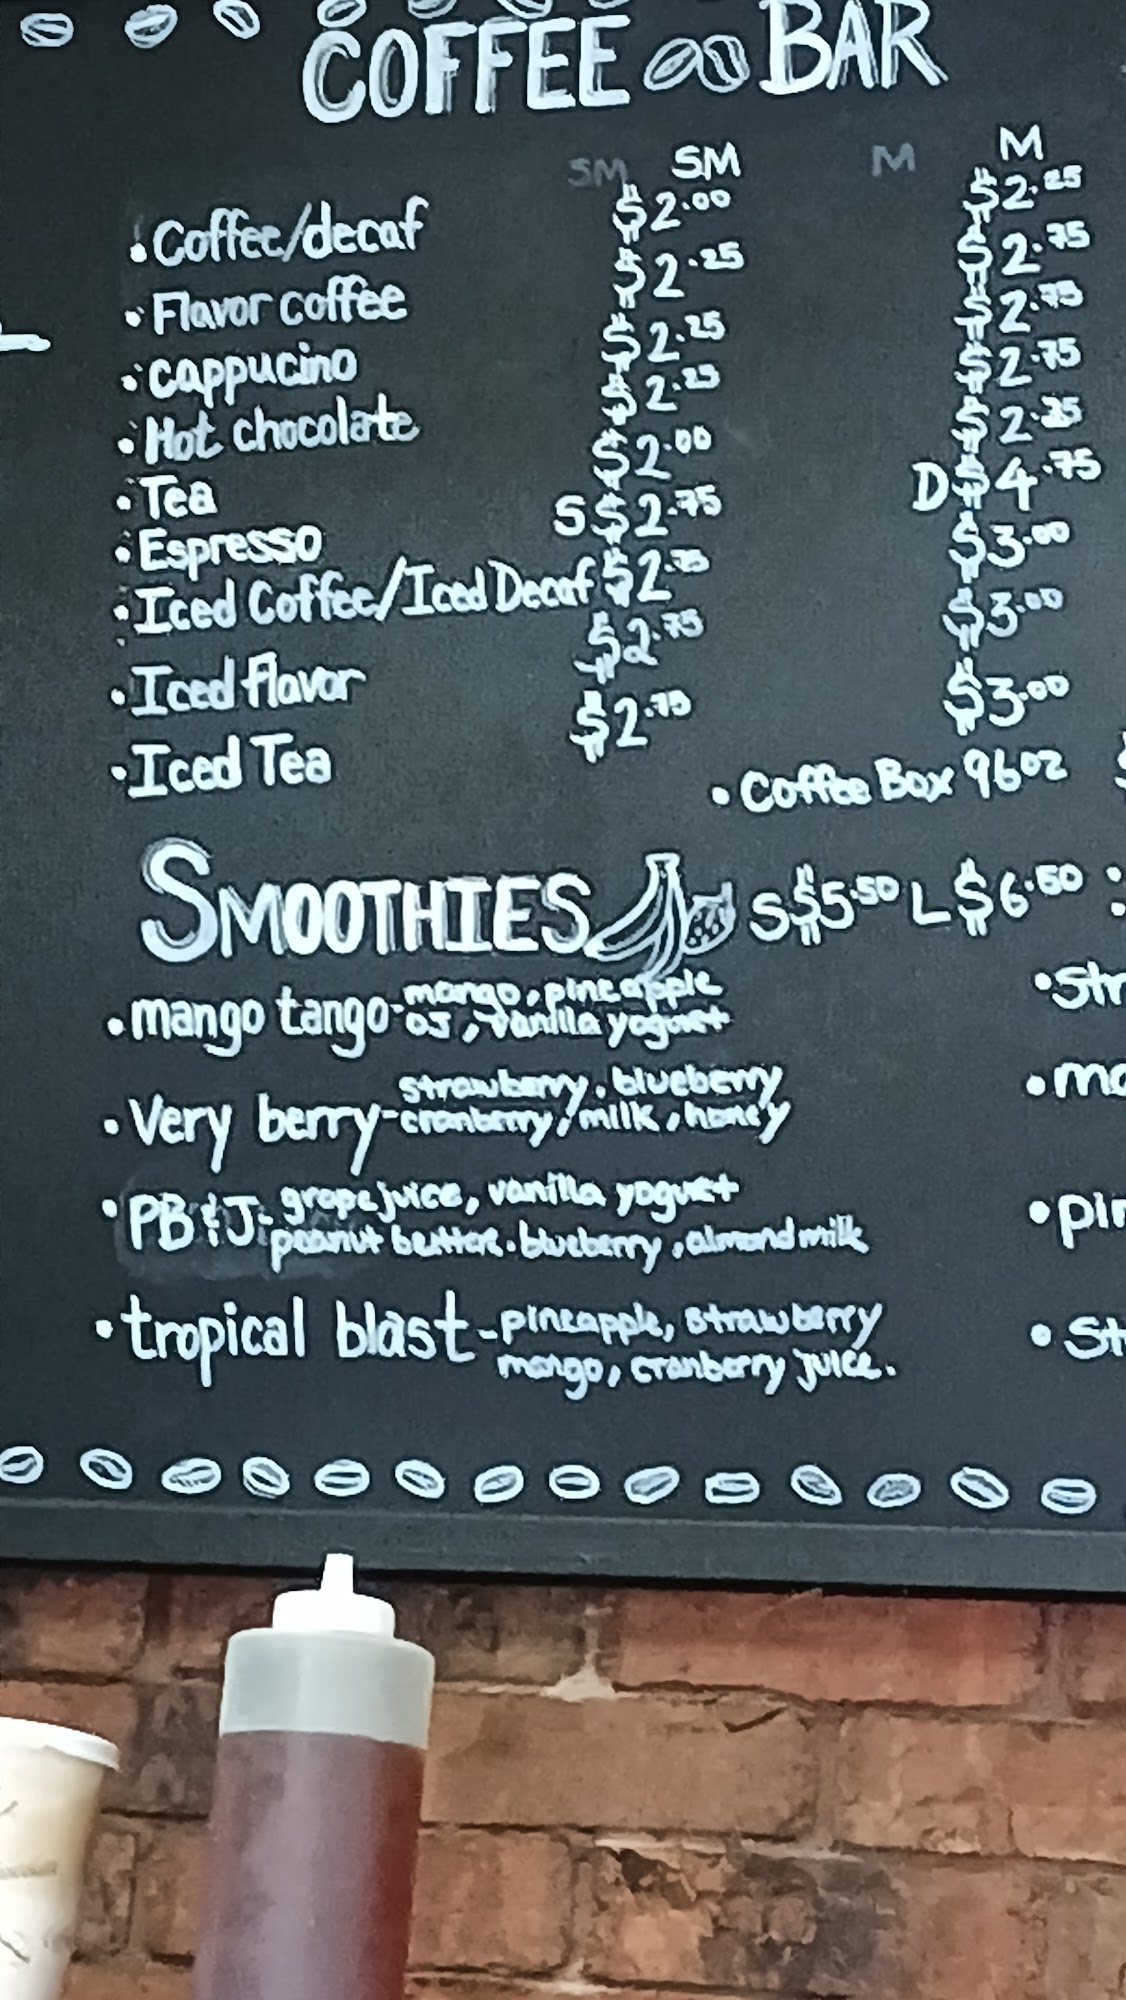 COFFEE BAR
SM SM M M
• Coffee/decaf $2.00 $2.25
• Flavor coffee $2.25 $2.75
• cappucino $2.25 $2.75
• Hot chocolate $2.25 $2.75
• Tea $2.00 $2.25
• Espresso S $2.75 D $4.75
• Iced Coffee/Iced Decaf $2.75 $3.00
• Iced flavor $2.75 $3.00
• Iced Tea $2.75 $3.00
• Coffee Box 96oz
SMOOTHIES S $5.50 L $6.50
• mango tango - mango, pineapple
OJ, vanilla yogurt
• Very berry - strawberry, blueberry
cranberry, milk, honey
• PB & J - grape juice, vanilla yogurt
peanut butter, blueberry, almond milk
• tropical blast - pineapple, strawberry
mango, cranberry juice.